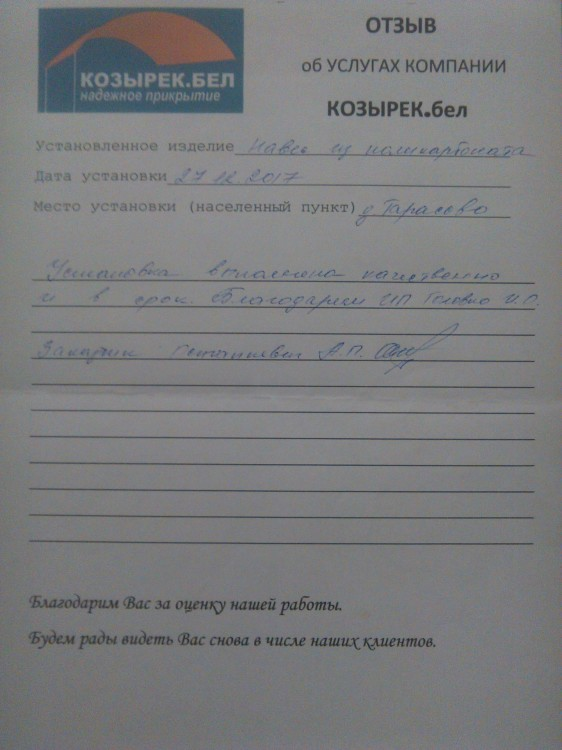 КОЗЫРЕК.БЕЛ
надежное прикрытие
ОТЗЫВ
об УСЛУГАХ КОМПАНИИ
КОЗЫРЕК.бел
Установленное изделие Навес из поликарбоната
Дата установки 27.12.2017
Место установки (населенный пункт) д Тарасово
Установка выполнена качественно
и в срок. Благодарим ИП Головко И.О.
Заказчик А.П.
Благодарим Вас за оценку нашей работы.
Будем рады видеть Вас снова в числе наших клиентов.